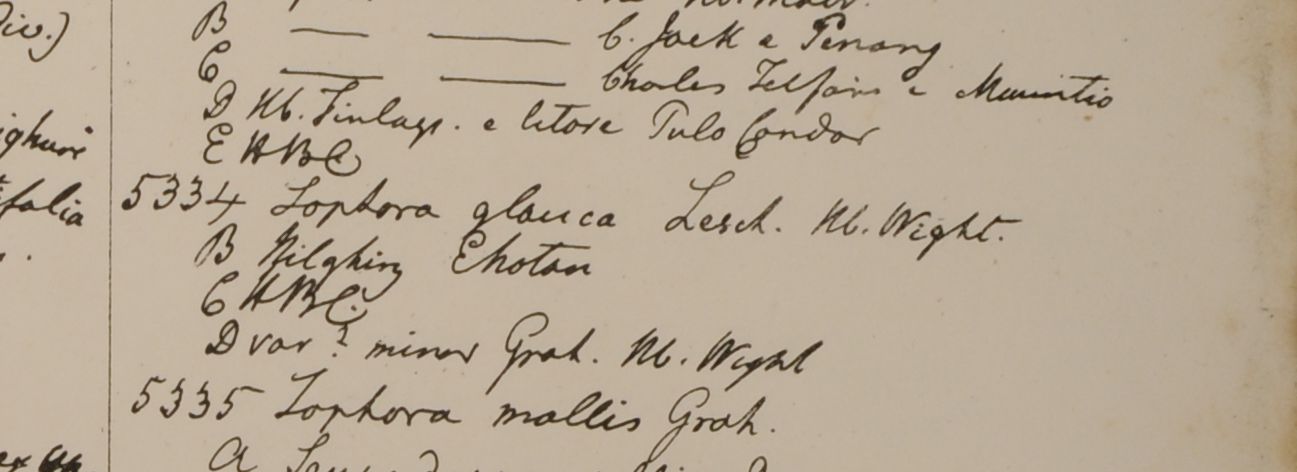 Div.)
B — — C. Jack e Penang
C — — Charles Telfair e Mauritio
D Hb. Finlays. e litore Pulo Condor
E HBC
5334 Sophora glauca Lesch. Hb. Wight.
B Nilghiry Chotan
C HBC.
D var? minor Grah. Hb. Wight
5335 Sophora mollis Grah.
A
folia